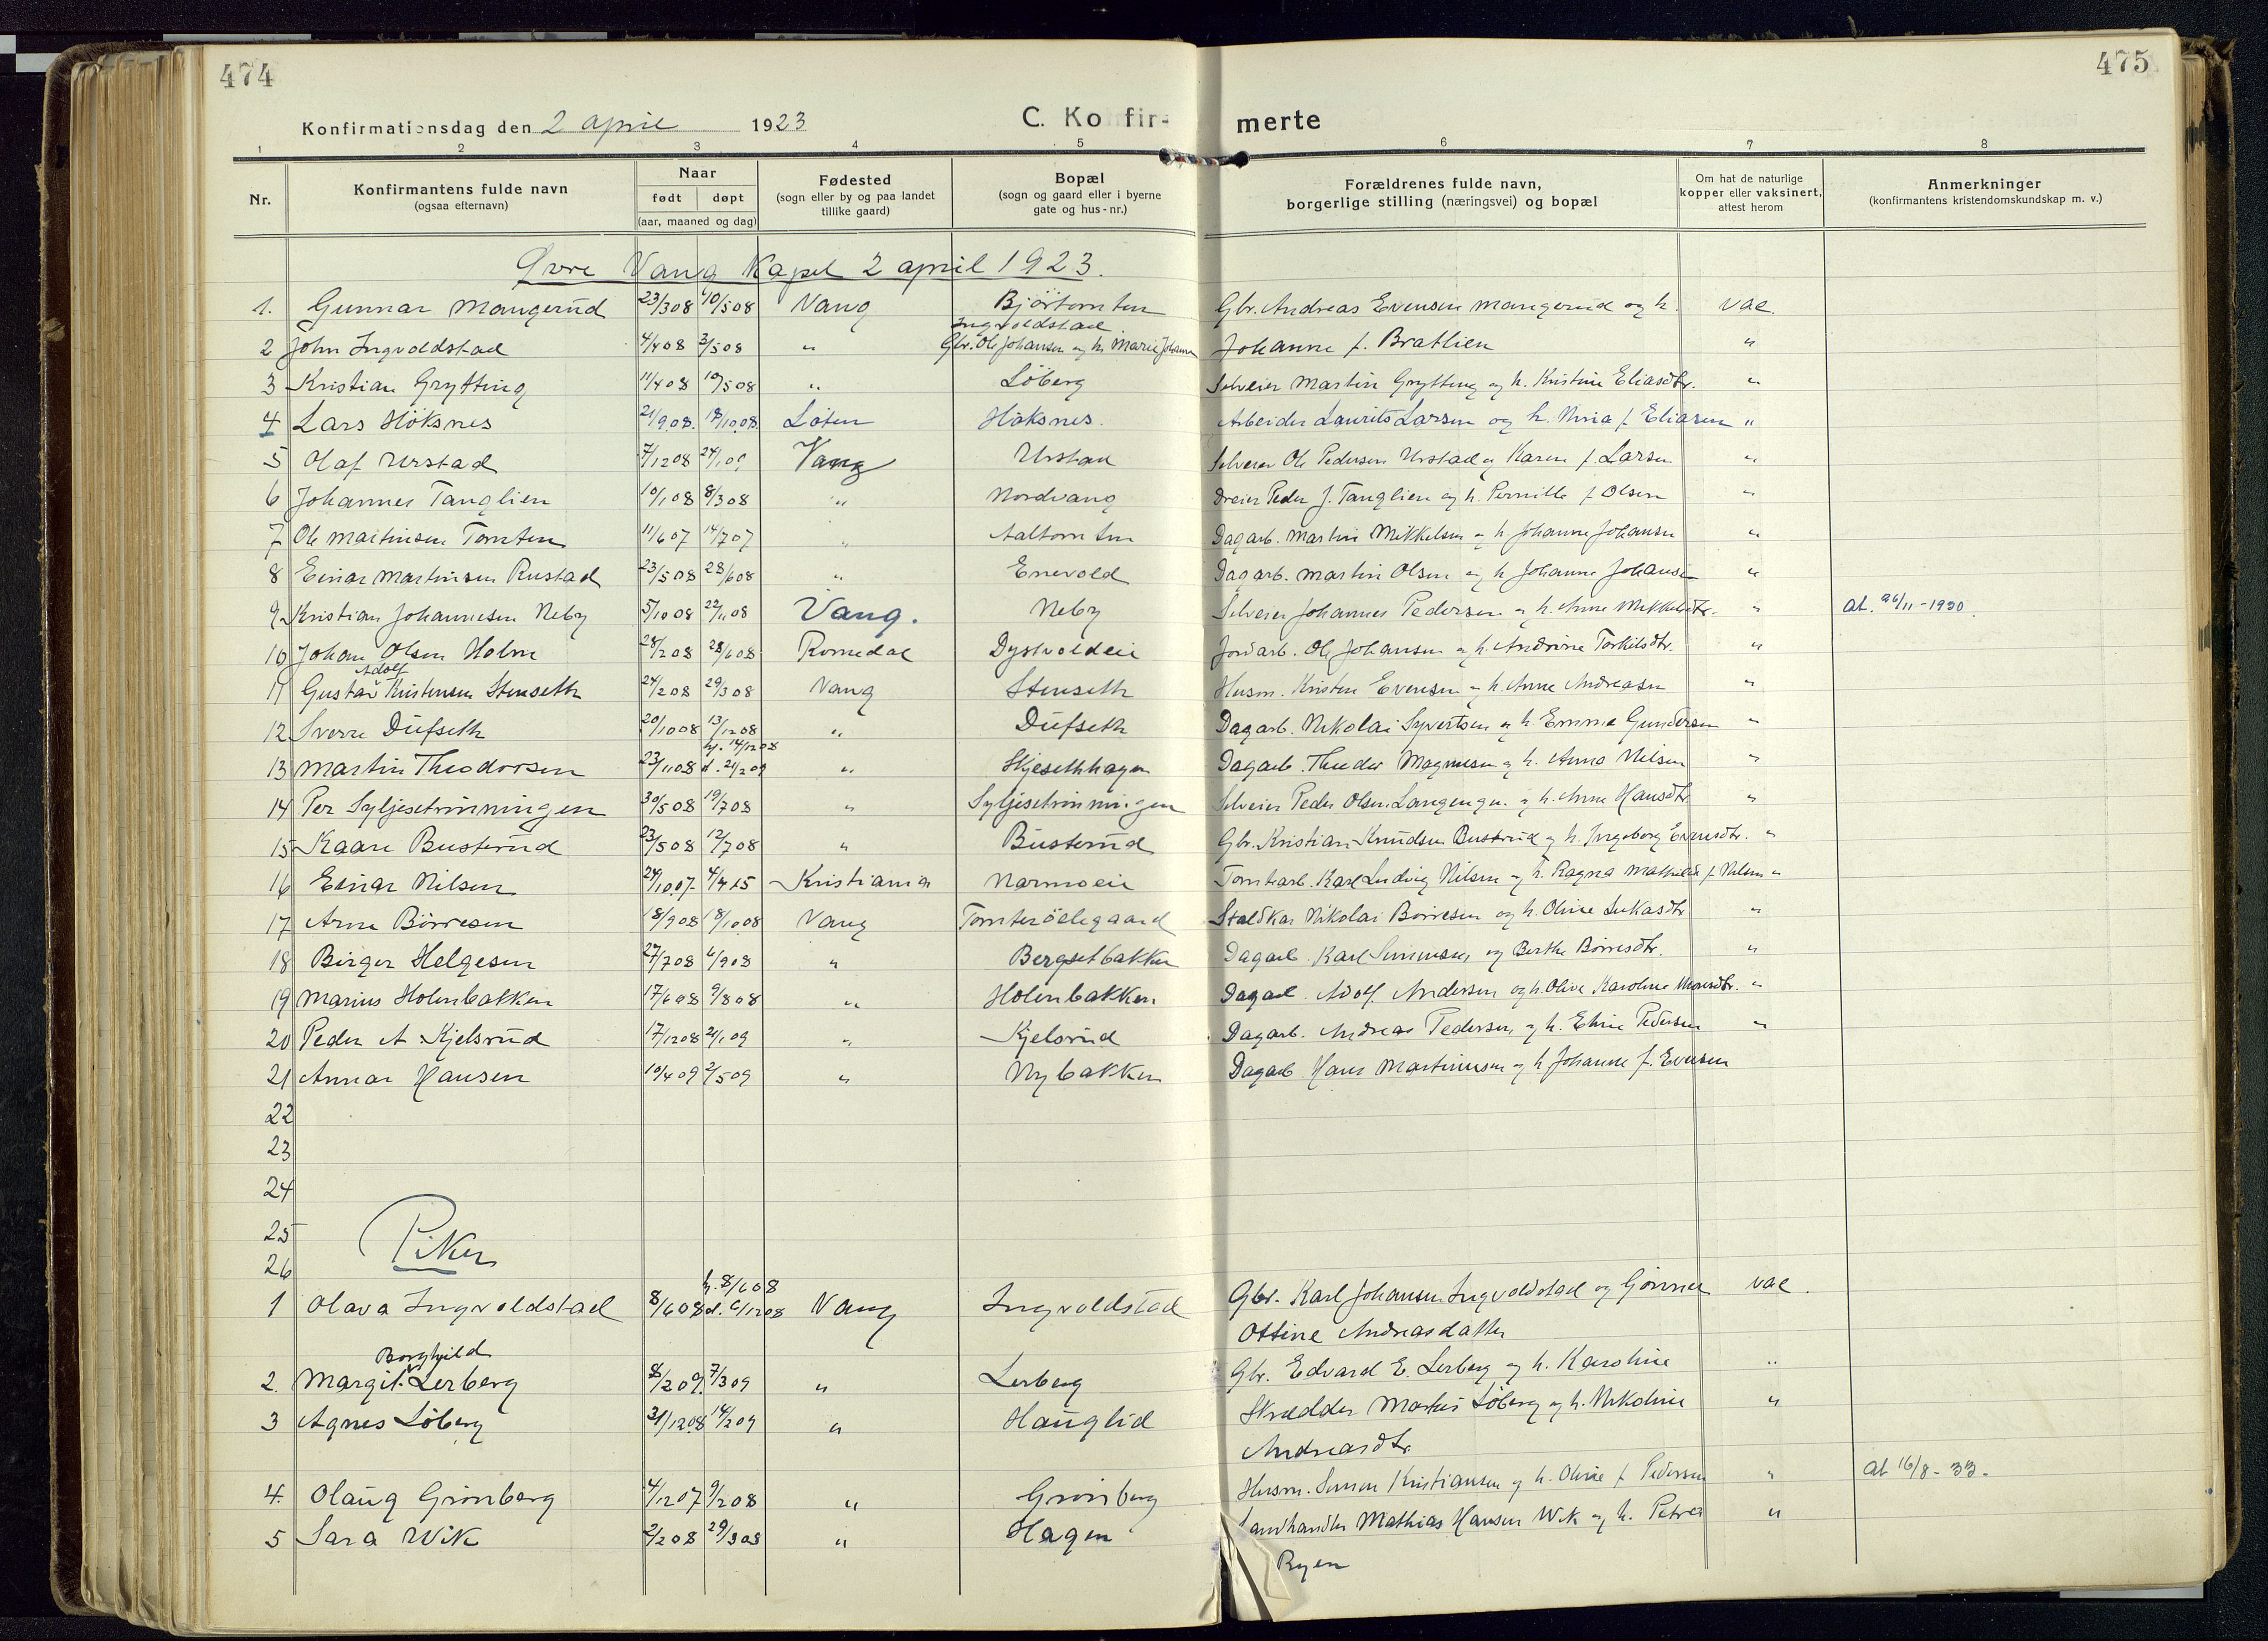 474
475
Konfirmationsdag den 2 april 1923
C. Konfir-
merte
1 2 3 4 5 6 7 8
Nr.
Konfirmantens fulde navn
(ogsaa efternavn)
Naar
født døpt
(aar, maaned og dag)
Fødested
(sogn eller by og paa landet
tillike gaard)
Bopæl
(sogn og gaard eller i byerne
gate og hus-nr.)
Forældrenes fulde navn,
borgerlige stilling (næringsvei) og bopæl
Om hat de naturlige
kopper eller vaksinert,
attest herom
Anmerkninger
(konfirmantens kristendomskundskap m. v.)
Øvre Vang Kapel 2 april 1923.
1. Gunnar Mangerud 23/3 08 10/5 08 Vang Björtomten Gbr. Andreas Evensen Mangerud og h. vac.
Ingvoldstad
2 John Ingvoldstad 4/4 08 3/5 08 " Gbr. Ole Johansen og h. Marie Johanne Johanne f. Bratlien "
3 Kristian Grytting 11/4 08 10/5 08 " Löberg Selveier Martin Grytting og h. Kristine Eliasdtr. "
4 Lars Höksnes 21/9 08. 18/10 08. Löten Höksnes. Arbeider Laurits Larsen og h. f. Eliasen "
5 Olaf Urstad 7/12 08 24/1 09 Vang Urstad Selveier Ole Pedersen Urstad og Karen f. Larsen "
6 Johannes Tanglien 10/1 08 8/3 08 " Nordvang Dreier Peder J. Tanglien og h. Pernille f Olsen "
7 Ole Martinsen Tomten 11/6 07 14/7 07 " Aaltomten Dagarb. Martin Mikkelsen og h Johanne Johansen "
8 Einar Martinsen Rustad 23/5 08 28/6 08 " Enevold Dagarb. Martin Olsen og h Johanne Johansen "
9 Kristian Johannesen Neby 5/10 08 22/11 08 Vang. Neby Selveier Johannes Pedersen og h. Anne Mikkelsdtr. " At. 26/11-1930.
10 Johan Olsen Holm 28/2 08 28/6 08 Romedal Dystvoldeie Jordarb. Ole Johansen og h. Andrine Torkilsdtr. "
Adolf
11 Gustav Kristensen Stenseth 24/2 08 29/3 08 Vang Stenseth Husm. Kristen Evensen og h. Anne Andreasen "
12 Sverre Dufseth 20/10 08 13/12 08 " Dufseth Dagarb. Nikolai Syvertsen og h Emma Gundersen "
hj. 14/12 08
13 Martin Theodorsen 23/11 08 d. 21/2 09 " Skjesethhagen Dagarb. Theodor Magnusen og h. Anna Nilsen "
14 Per Syljesetrinningen 30/5 08 19/7 08 " Syljesetrinningen Selveier Peder Olsen Langengen og h. Anne Hansdtr. "
15 Kaare Busterud 23/5 08 12/7 08 " Busterud Gbr. Kristian Knudsen Busterud og h. Ingeborg Evensdtr. "
16 Einar Nilsen 24/10 07 4/4 15 Kristiania Narmoeie Tomtearb. Karl Ludvig Nilsen og h. Ragna Mathilde f Nilsen "
17 Arne Börresen 18/9 08 18/10 08 Vang Tomterödegaard Staldkar Nikolai Börresen og h. Oline Lukasdtr "
18 Birger Helgesen 27/7 08 6/9 08 " Bergsetbakken Dagarb. Karl Simensen og Berthe Börresdtr. "
19 Marius Holenbakken 17/6 08 9/8 08 " Holenbakken Dagarb. Adolf Andersen og h. Olive Karoline Monsdtr. "
20 Peder A Kjelsrud 17/12 08 21/1 09 " Kjelsrud Dagarb. Andreas Pedersen og h. Eline Pedersen "
21 Annar Hansen 10/4 09 2/5 09 " Nybakken Dagarb. Hans Martinusen og h Johanne f. Evensen
22
23
24
25
Piker
26
hj. 8/6 08
1 Olava Ingvoldstad 8/6 08 d. 6/12 08 Vang Ingvoldstad Gbr. Karl Johansen Ingvoldstad og Gönner vac.
Ottine Andreasdatter
Borghild
2. Margit Lerberg 8/2 09. 7/3 09 " Lerberg Gbr. Edvard E. Lerberg og h. Karoline "
3 Agnes Löberg 31/12 08 14/2 09 " Hauglid Skrædder Martin Löberg og h. Nikoline "
Andreasdtr.
4. Olaug Grönberg 4/12 07 9/2 08 " Grönberg Husm. Simen Kristiansen og h. Oline f Pedersen " At 16/8-33-
5 Sara Wik 2/2 08 29/3 08 " Hagen Landhandler Mathias Hansen Wik og h. Petrea "
Ryen